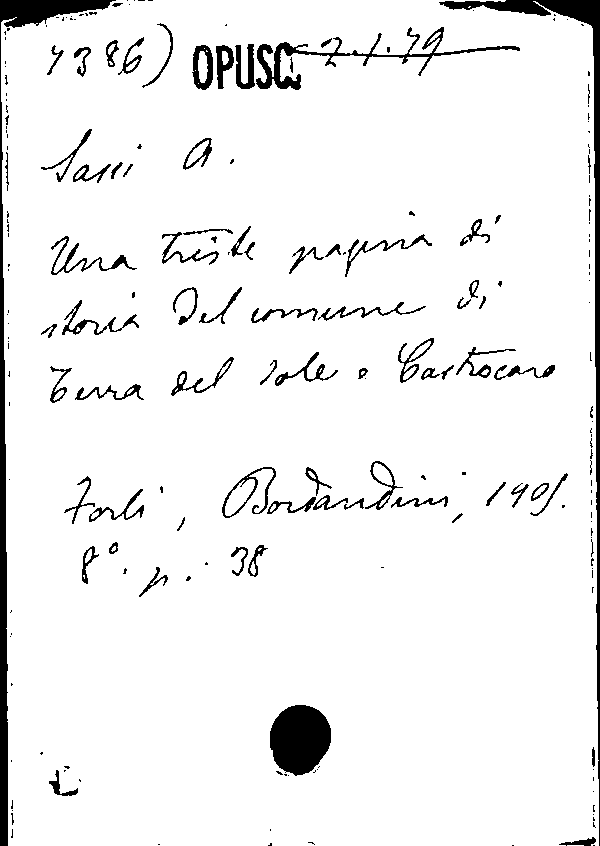 7386) OPUSC. 2.1.79
Sassi A.
Una triste pagina di
storia del comune di
Terra del Sole e Castrocaro
Forlì, Bordandini, 1905.
8° p. 38